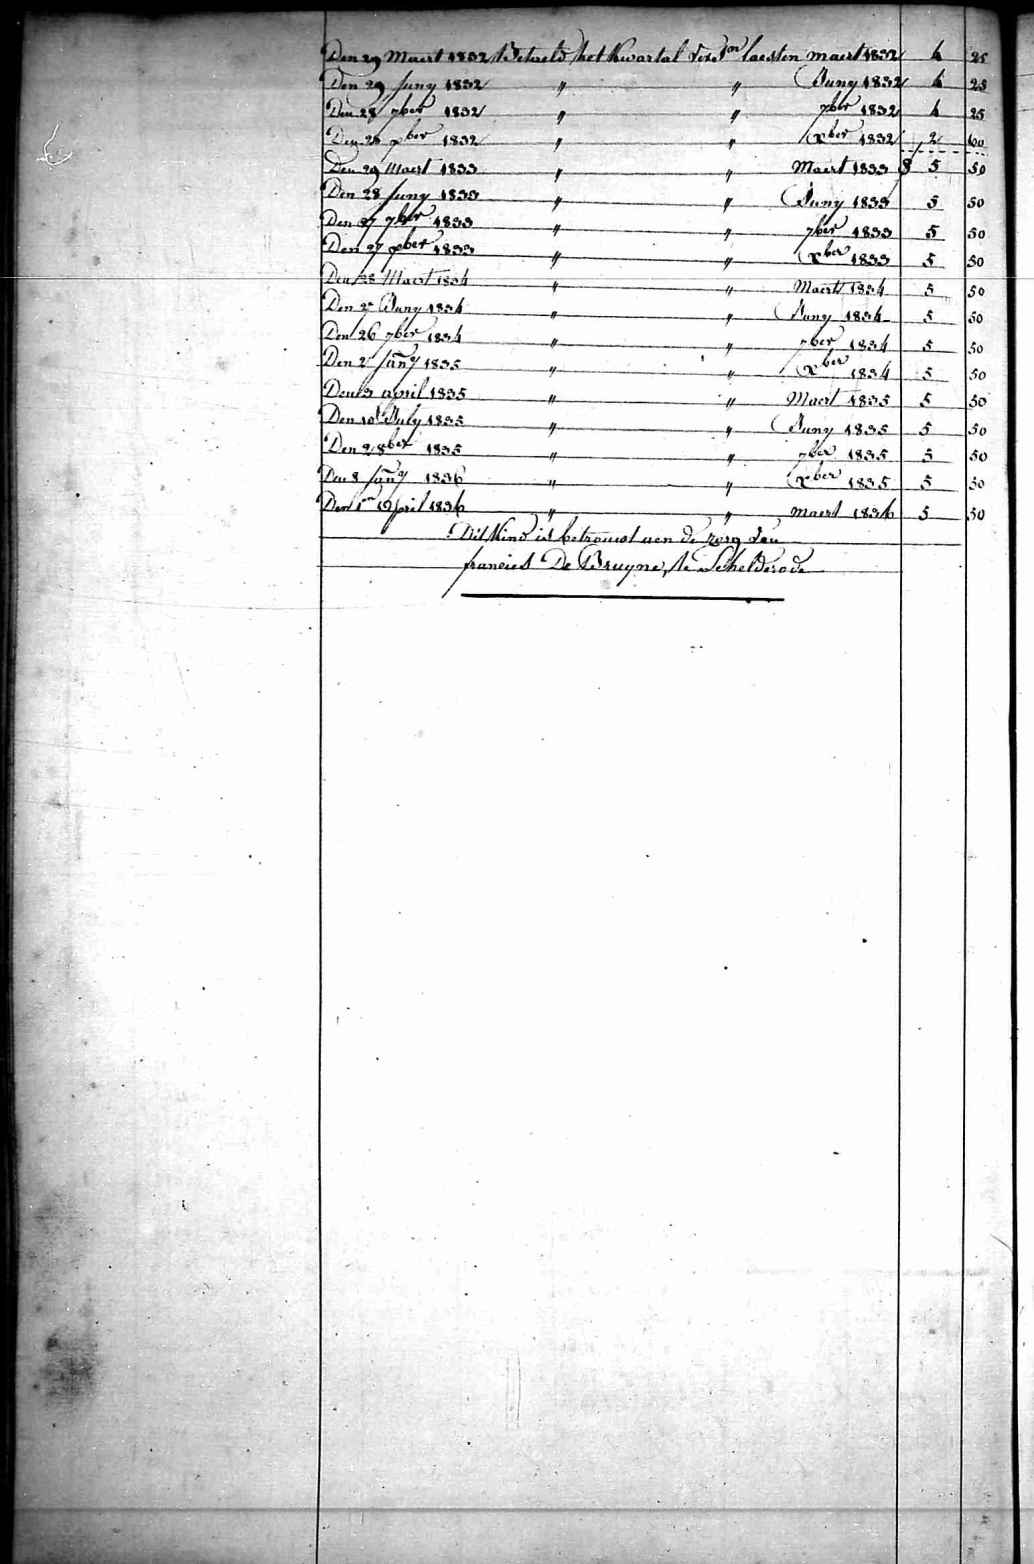 Den 29 Maert 1832 Betaeld het Kwartal den laesten maert 1832 4 25
Den 29 Juny 1832 " " Juny 1832 4 25
Den 28 7ber 1832 " " 7ber 1832 4 25
Den 28 xber 1832 " " xber 1832 2 100
Den 29 Maert 1833 " " Maert 1833 5 50
Den 28 Juny 1833 " " Juny 1833 5 50
Den 27 7ber 1833 " " 7ber 1833 5 50
Den 27 xber 1833 " " xber 1833 5 50
Den 28 Maert 1834 " " Maert 1834 5 50
Den Juny 1834 " " Juny 1834 5 50
Den 26 7ber 1834 " " 7ber 1834 5 50
Den 2 Jany 1835 " " xber 1834 5 50
Den 3 april 1835 " " Maert 1835 5 50
Den 10 July 1835 " " Juny 1835 5 50
Den 2 8ber 1835 " " 7ber 1835 5 50
Den 8 Jany 1836 " " xber 1835 5 50
Den 1en April 1836 " " maert 1836 5 50
Dit Kind is betrouwt aen de zorg van
francies De Bruyne, te Schelderode